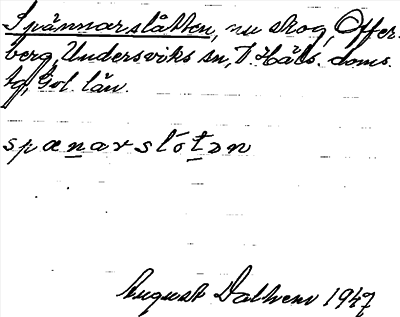 Spännarslåtten, nu skog, Offer-
berg, Undersviks sn, V. Häls. doms.
tg, Gvl. län.
spænarslòtǝn
August Dalhem 1947